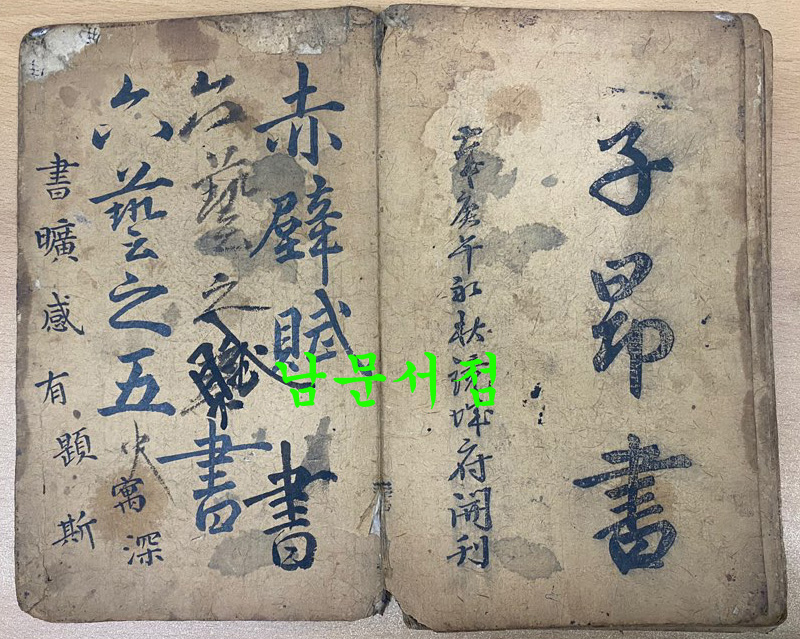 子昂書
庚午初秋府開刊
赤壁賦書
六藝之賦書
六藝之五
寓深
書曠感有題斯
남문서점